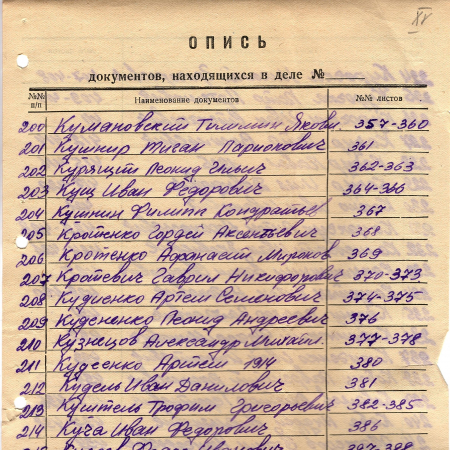 XV
ОПИСЬ
документов, находящихся в деле №
№№ п/п Наименование документов №№ листов
200 Кумановский Яковл 357-360
201 Кушнир Ларионович 361
202 Леонид Ильич 362-363
203 Кущ Иван Фёдорович 364-366
204 Кушнин Филипп Кондратье 367
205 Кротенко Гордей Аксентьевич 368
206 Кротенко Афанасий Миронов 369
207 Кротевич Гаврил Никифорович 370-373
208 Кудиенко Артем Семенович 374-375
209 Леонид Андреевич 376
210 Кузнецов Александр Михайл. 377-378
211 Артем 1914 380
212 Кудель Иван Данилович 381
213 Трофим Григорьевич 382-385
214 Куча Иван Федорович 386